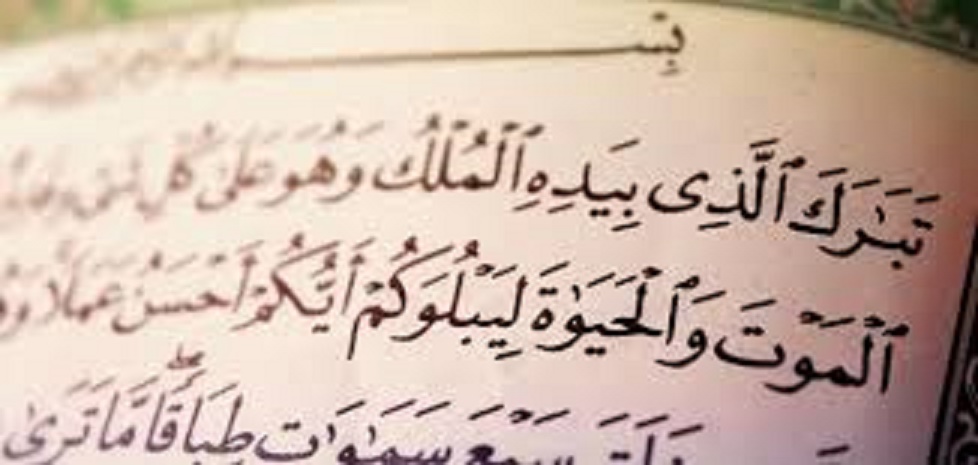 بِسْـــــــــــ
تَبَٰرَكَ ٱلَّذِى بِيَدِهِ ٱلْمُلْكُ وَهُوَ عَلَىٰ كُلِّ شَىْءٍ
ٱلْمَوْتَ وَٱلْحَيَوٰةَ لِيَبْلُوَكُمْ أَيُّكُمْ أَحْسَنُ عَمَلًا
سَبْعَ سَمَٰوَٰتٍ طِبَاقًا ۖ مَّا تَرَىٰ